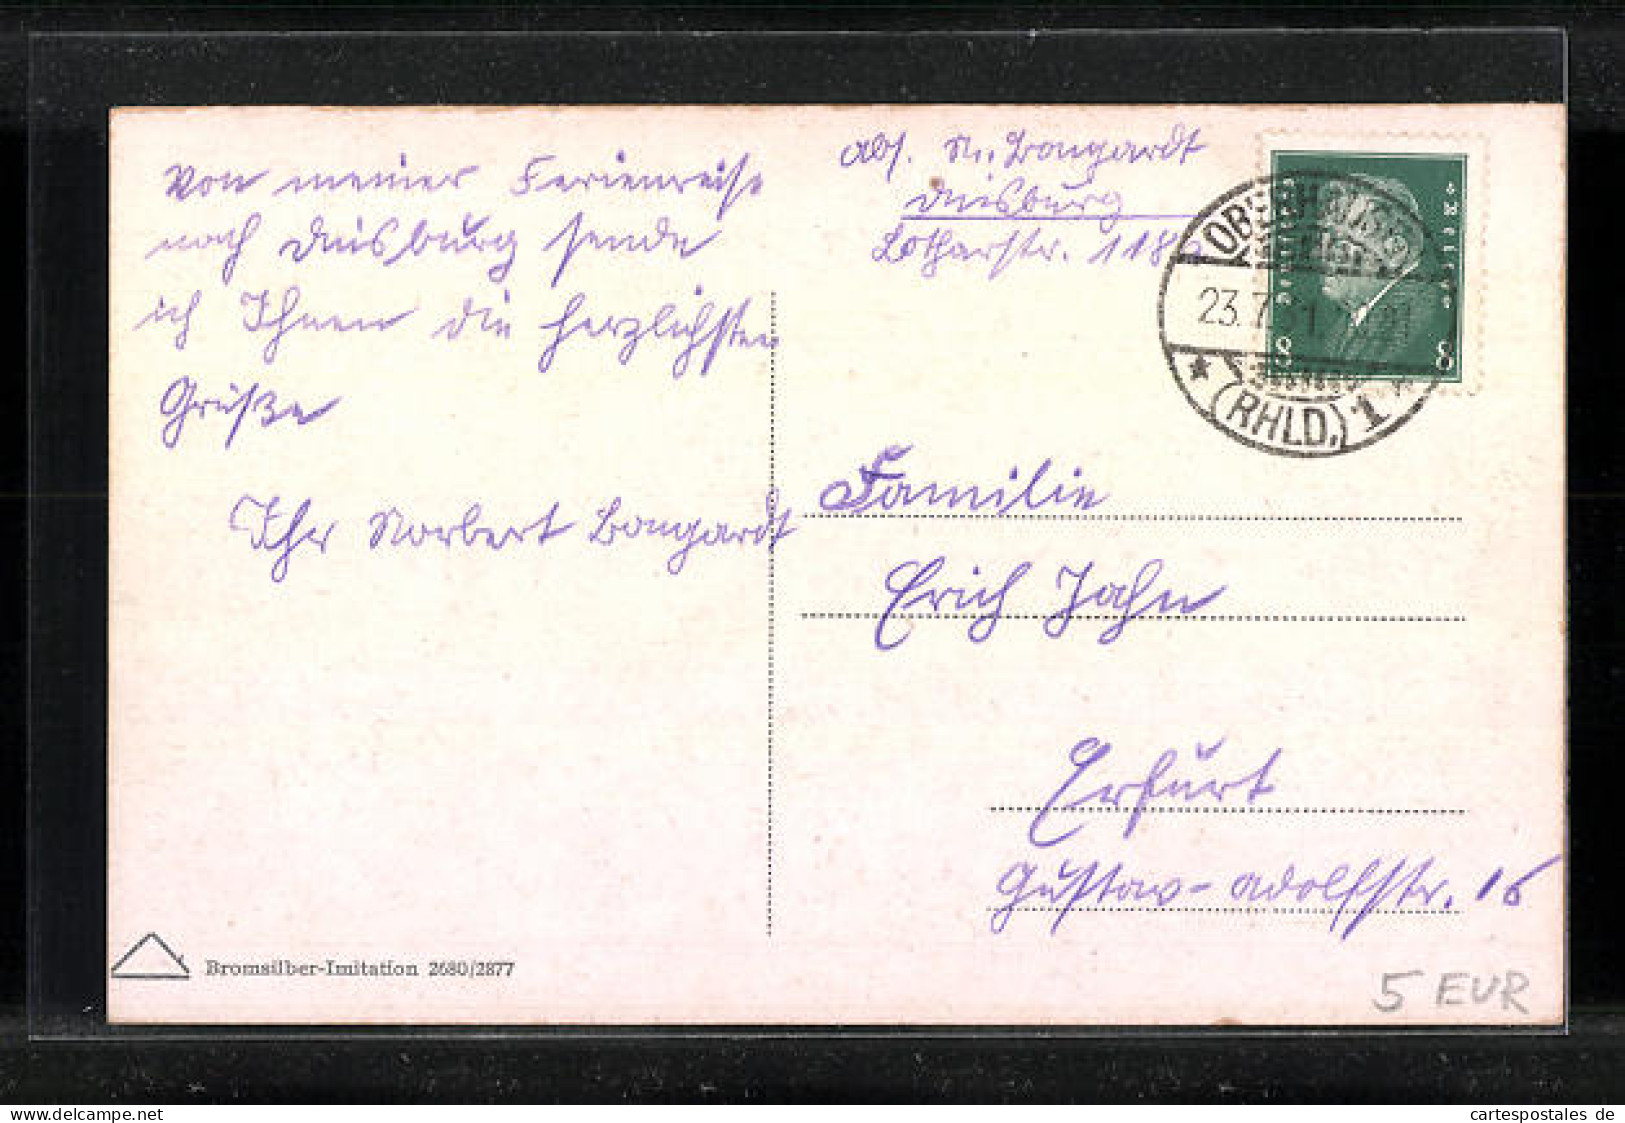 Von meiner Ferienreise
nach Duisburg sende
ich Ihnen die herzlichsten
Grüße
Ihr Norbert Bongardt
Abs. N. Bongardt
Duisburg
Lotharstr. 118
Deutsches Reich
8 8
OBERHAUSEN
23.7.31
(RHLD.) 1
Familie
Erich Jahn
Erfurt
Gustav-Adolfstr. 16
Bromsilber-Imitation 2680/2877
5 EUR
cartespostales_cb
cartespostales de